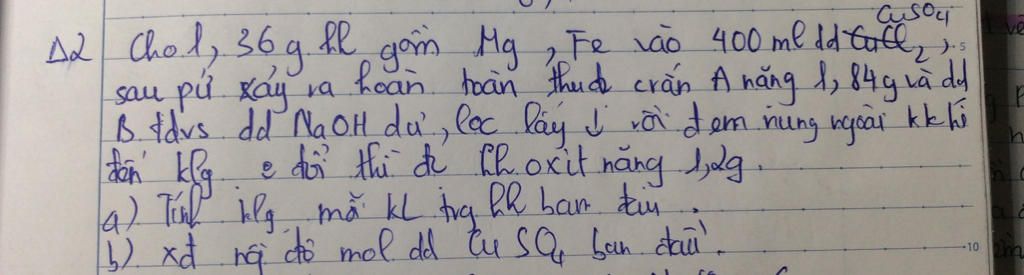 CuSO4
Δ2 Cho 1,36g hh gồm Mg, Fe vào 400 ml dd CuCl2,
sau pứ xảy ra hoàn toàn thu đc crắn A nặng 1,84g và dd
B tdvs dd NaOH dư, lọc lấy ↓ rồi đem nung ngoài kkhí
đến klg e đổi thì đc hh oxit nặng 1,2g.
a) Tính klg mỗi KL trg hh ban đầu.
b) xđ nộ độ mol dd CuSO4 ban đầu.